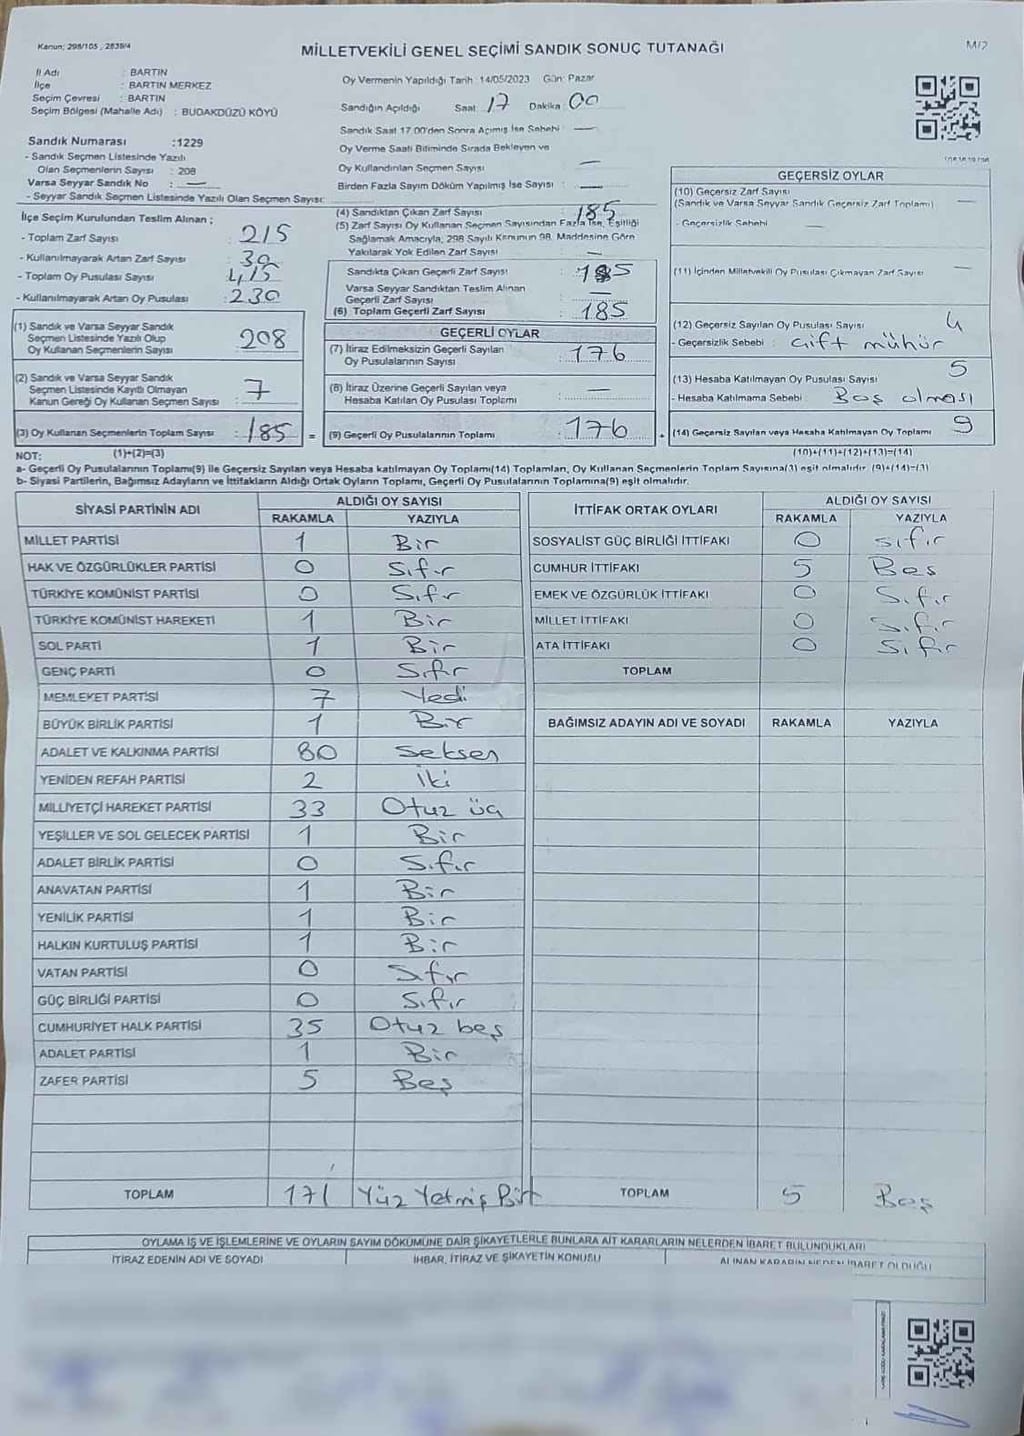 Kanun; 298/105 , 2839/4
MİLLETVEKİLİ GENEL SEÇİMİ SANDIK SONUÇ TUTANAĞI
M/2
İl Adı : BARTIN
İlçe : BARTIN MERKEZ
Seçim Çevresi : BARTIN
Seçim Bölgesi (Mahalle Adı) : BUDAKDÜZÜ KÖYÜ
Oy Vermenin Yapıldığı Tarih :14/05/2023 Gün: Pazar
Sandığın Açıldığı Saat :17 Dakika :00
Sandık Saat 17.00'den Sonra Açılmış İse Sebebi : —
Oy Verme Saati Bitiminde Sırada Bekleyen ve
Oy Kullandırılan Seçmen Sayısı : —
Birden Fazla Sayım Döküm Yapılmış İse Sayısı : —
Sandık Numarası :1229
- Sandık Seçmen Listesinde Yazılı
Olan Seçmenlerin Sayısı : 208
Varsa Seyyar Sandık No : —
- Seyyar Sandık Seçmen Listesinde Yazılı Olan Seçmen Sayısı:
İlçe Seçim Kurulundan Teslim Alınan ;
- Toplam Zarf Sayısı : 215
- Kullanılmayarak Artan Zarf Sayısı : 30
- Toplam Oy Pusulası Sayısı : 415
- Kullanılmayarak Artan Oy Pusulası : 230
(1) Sandık ve Varsa Seyyar Sandık
Seçmen Listesinde Yazılı Olup
Oy Kullanan Seçmenlerin Sayısı : 208
(2) Sandık ve Varsa Seyyar Sandık
Seçmen Listesinde Kayıtlı Olmayan
Kanun Gereği Oy Kullanan Seçmen Sayısı : 7
(3) Oy Kullanan Seçmenlerin Toplam Sayısı : 185 =
(4) Sandıktan Çıkan Zarf Sayısı : 185
(5) Zarf Sayısı Oy Kullanan Seçmen Sayısından Fazla İse, Eşitliği
Sağlamak Amacıyla, 298 Sayılı Kanunun 98. Maddesine Göre
Yakılarak Yok Edilen Zarf Sayısı : —
Sandıkta Çıkan Geçerli Zarf Sayısı : 185
Varsa Seyyar Sandıktan Teslim Alınan
Geçerli Zarf Sayısı : —
(6) Toplam Geçerli Zarf Sayısı : 185
GEÇERLİ OYLAR
(7) İtiraz Edilmeksizin Geçerli Sayılan
Oy Pusulalarının Sayısı : 176
(8) İtiraz Üzerine Geçerli Sayılan veya
Hesaba Katılan Oy Pusulası Toplamı : —
(9) Geçerli Oy Pusulalarının Toplamı : 176 +
GEÇERSİZ OYLAR
(10) Geçersiz Zarf Sayısı
(Sandık ve Varsa Seyyar Sandık Geçersiz Zarf Toplamı) : —
- Geçersizlik Sebebi : —
(11) İçinden Milletvekili Oy Pusulası Çıkmayan Zarf Sayısı : —
(12) Geçersiz Sayılan Oy Pusulası Sayısı : 4
- Geçersizlik Sebebi : Çift mühür
(13) Hesaba Katılmayan Oy Pusulası Sayısı : 5
- Hesaba Katılmama Sebebi : Boş olması
(14) Geçersiz Sayılan veya Hesaba Katılmayan Oy Toplamı : 9
NOT: (1)+(2)=(3) (10)+(11)+(12)+(13)=(14)
a- Geçerli Oy Pusulalarının Toplamı(9) ile Geçersiz Sayılan veya Hesaba katılmayan Oy Toplamı(14) Toplamları, Oy Kullanan Seçmenlerin Toplam Sayısına(3) eşit olmalıdır. (9)+(14)=(3)
b- Siyasi Partilerin, Bağımsız Adayların ve İttifakların Aldığı Ortak Oyların Toplamı, Geçerli Oy Pusulalarının Toplamına(9) eşit olmalıdır.
SİYASİ PARTİNİN ADI ALDIĞI OY SAYISI
RAKAMLA YAZIYLA
MİLLET PARTİSİ 1 Bir
HAK VE ÖZGÜRLÜKLER PARTİSİ 0 Sıfır
TÜRKİYE KOMÜNİST PARTİSİ 0 Sıfır
TÜRKİYE KOMÜNİST HAREKETİ 1 Bir
SOL PARTİ 1 Bir
GENÇ PARTİ 0 Sıfır
MEMLEKET PARTİSİ 7 Yedi
BÜYÜK BİRLİK PARTİSİ 1 Bir
ADALET VE KALKINMA PARTİSİ 80 Seksen
YENİDEN REFAH PARTİSİ 2 İki
MİLLİYETÇİ HAREKET PARTİSİ 33 Otuz üç
YEŞİLLER VE SOL GELECEK PARTİSİ 1 Bir
ADALET BİRLİK PARTİSİ 0 Sıfır
ANAVATAN PARTİSİ 1 Bir
YENİLİK PARTİSİ 1 Bir
HALKIN KURTULUŞ PARTİSİ 1 Bir
VATAN PARTİSİ 0 Sıfır
GÜÇ BİRLİĞİ PARTİSİ 0 Sıfır
CUMHURİYET HALK PARTİSİ 35 Otuz beş
ADALET PARTİSİ 1 Bir
ZAFER PARTİSİ 5 Beş
TOPLAM 171 Yüz Yetmiş Bir
İTTİFAK ORTAK OYLARI ALDIĞI OY SAYISI
RAKAMLA YAZIYLA
SOSYALİST GÜÇ BİRLİĞİ İTTİFAKI 0 Sıfır
CUMHUR İTTİFAKI 5 Beş
EMEK VE ÖZGÜRLÜK İTTİFAKI 0 Sıfır
MİLLET İTTİFAKI 0 Sıfır
ATA İTTİFAKI 0 Sıfır
TOPLAM
BAĞIMSIZ ADAYIN ADI VE SOYADI RAKAMLA YAZIYLA
TOPLAM 5 Beş
OYLAMA İŞ VE İŞLEMLERİNE VE OYLARIN SAYIM DÖKÜMÜNE DAİR ŞİKAYETLERLE BUNLARA AİT KARARLARIN NELERDEN İBARET BULUNDUKLARI
İTİRAZ EDENİN ADI VE SOYADI İHBAR, İTİRAZ VE ŞİKAYETİN KONUSU ALINAN KARARIN NEDEN İBARET OLDUĞU